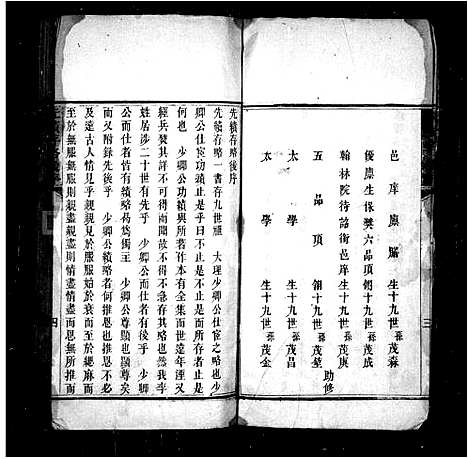 邑庠廩膳生十九世孫茂森
優廩生保獎六品頂翎十九世孫茂成
翰林院待詔銜邑庠生十九世孫茂庚
五品頂翎十九世孫茂堃
太學生十九世孫茂昌
太學生十九世孫茂金
助修
三
先績存略後序
先績存略一書存九世顯 大理少卿公仕宦之績存略也
少卿公仕宦功績止是乎曰不止是不止是而所存止是
何也 少卿公功績與所著作本有全集而世遠年湮又
經兵燹其詳不可得而聞故不得已存其略也然我李
姓居 二十世有先乎 少卿公而仕者有後乎 少卿
公而仕者皆有績略曷為獨主 少卿公尊顯也尊
及遠古人情見乎親親見於服服始於衰而至於緦麻而
至於無服無服則親盡親盡則情盡情盡而恩無所推而
四